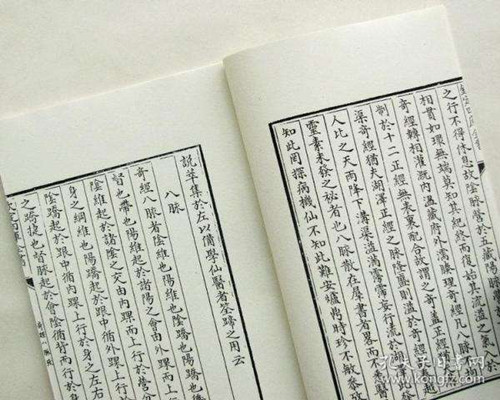 之行不得休息故陰脈營於五藏
相貫如環無端莫知其紀終而復始其流溢
奇經轉相灌溉內溫藏府外濡腠理奇經凡八脈
制於十二正經無表裏配合故謂之奇蓋正經
渠奇經猶夫湖澤正經之脈隆盛則溢於奇
人比之天雨降下溝渠溢滿霶霈妄行流於湖
靈素未發之秘者也八脈散在羣書者畧而不
知此罔探病機仙不知此難安爐鼎時珍不敏參攷
說萃集於左以備學仙醫者筌蹄之用云
八脈
奇經八脈者陰維也陽維也陰蹻也陽蹻也
督也帶也陽維起於諸陽之會由外踝而上行於衛分
陰維起於諸陰之交由內踝而上行於營分
身之綱維也陽蹻起於跟中循外踝上行於身之左右
陰蹻起於跟中循內踝上行於身之左右
之蹻捷也督脈起於會陰循背而行於